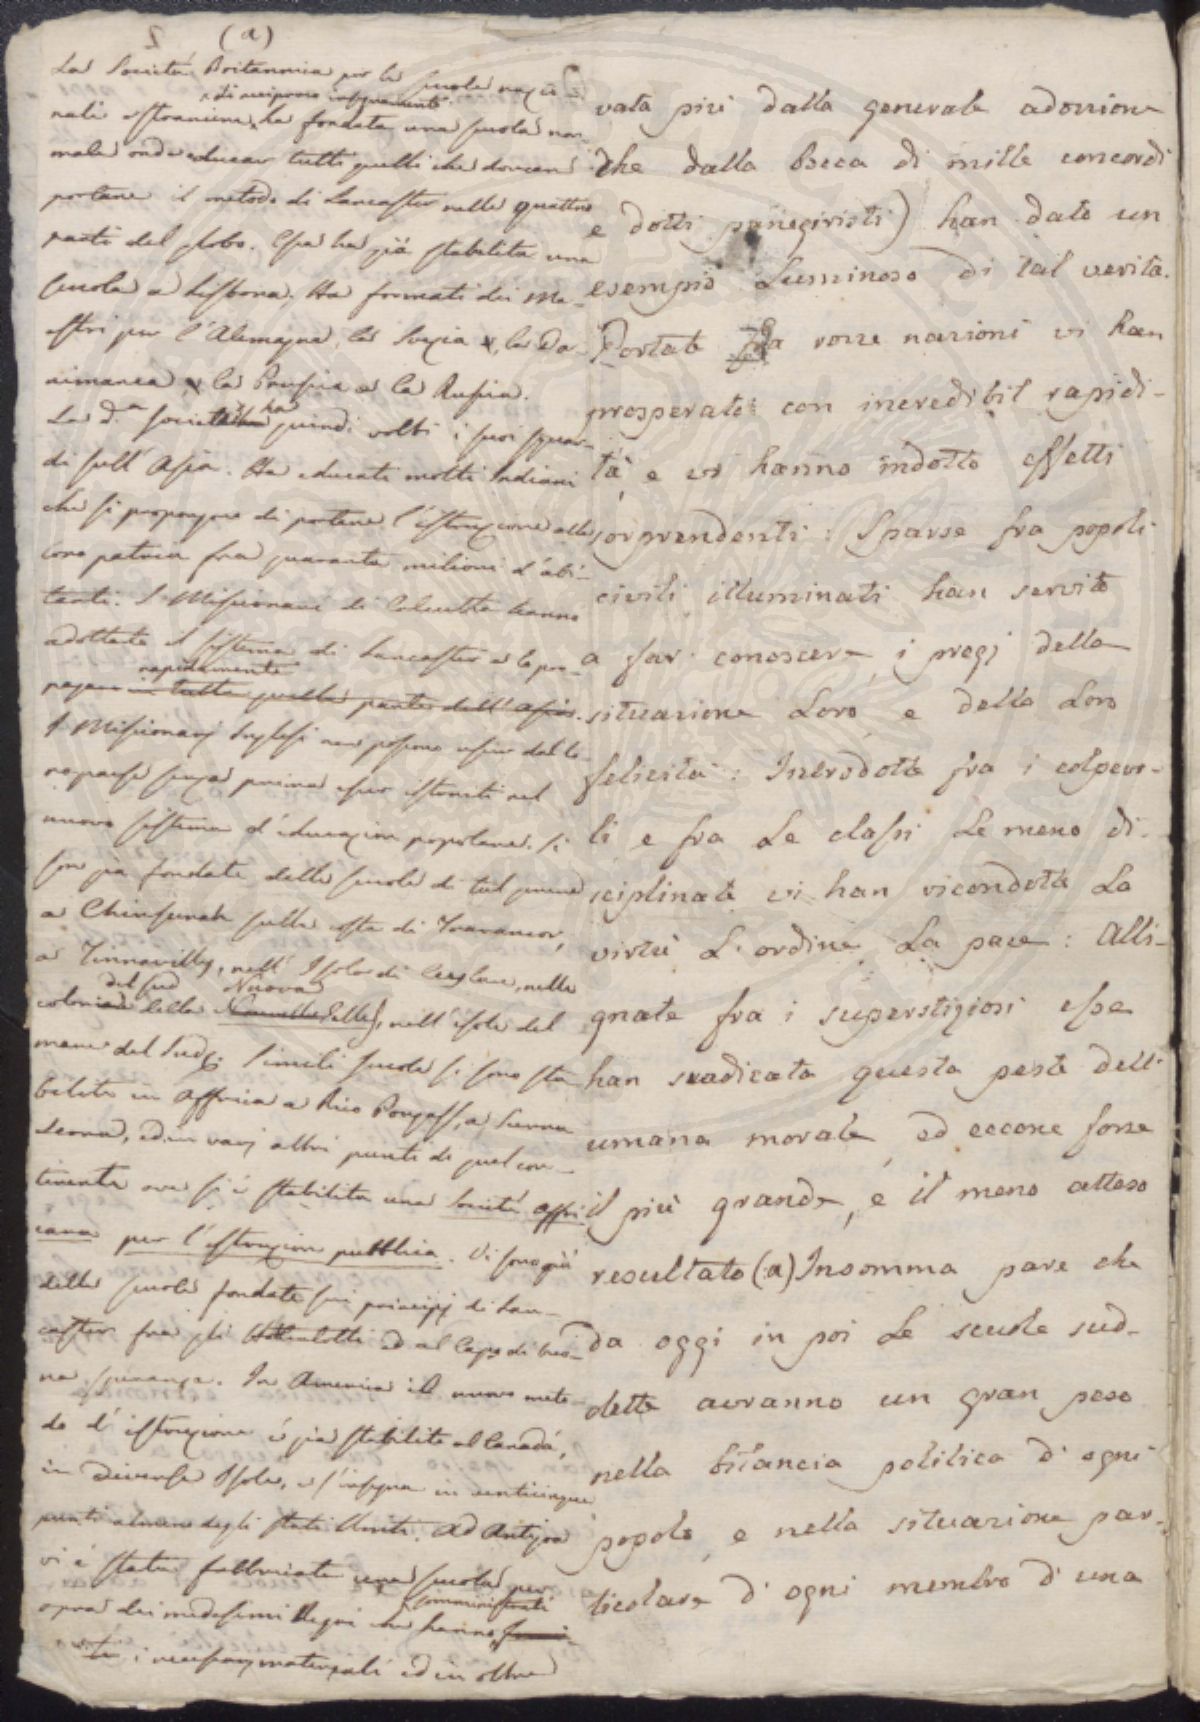 (a)
La Società Britannica per le scuole nazio-
di reciproco insegnamento
nali e straniere, ha fondata una scuola nor-
male onde educar tutti quelli che dovean
portare il metodo di Lancaster nelle quattro
parti del globo. Essa ha già stabilita una
scuola a Lisbona. Ha formati dei Ma-
estri per l'Alemagna, la Svezia, la Da-
nimarca, la Prussia e la Russia.
La d.a società ha quindi volti i suoi sguar-
di sull'Asia. Ha educati molti Indiani
che si propongono di portare l'istruzione alla
loro patria fra quaranta milioni d'abi-
tanti. I Missionari di Calcutta hanno
adottato il sistema di Lancaster e lo pro-
rapidamente
pagano in tutta quella parte dell'Asia.
I Missionarj Inglesi non possono uscir dal lo-
ro paese senza prima esser istruiti nel
nuovo sistema d'educazione popolare. Si
son già fondate delle scuole di tal genere
a Chinsurah sulla costa di Travancor,
a Tinnavilly, nell'Isola di Ceylan, nelle
del sud Nuova
colonie della Galles, nell'isole del
mare del Sud. Simili scuole si sono sta-
bilite in Affrica a Rio Pongass, a Sierra
Leona, ed in varj altri punti di quel con-
tinente ove si è stabilita una Società Affri
cana per l'istruzione pubblica. Vi sono già
delle scuole fondate sui principj di Lan-
caster fra gli Ottentotti ed al Capo di buo-
na speranza. In America il nuovo meto-
do d'istruzione è già stabilito al Canadà,
in diverse Isole, e s'insegna in venticinque
punti almeno degli Stati Uniti. Ad Antigoa
vi è stata fabbricata una scuola per
somministrati
opra dei medesimi Negri che hanno
i necessarj materiali ed in oltre
vata più dalla generale adozione
che dalla bocca di mille concordi
e dotti panegiristi) han dato un
esempio Luminoso di tal verità.
Portate fra rozze nazioni vi han
prosperato con incredibil rapidi-
tà, e vi hanno indotto effetti
sorprendenti: Sparse fra popoli
civili illuminati han servito
a far conoscere i pregj della
situazione Loro e della Loro
felicità: Introdotte fra i colpevo-
li e fra Le classi Le meno di-
sciplinate vi han ricondotta La
virtù L'ordine La pace: Alli-
gnate fra i superstiziosi esse
han sradicata questa peste dell'
umana morale, ed eccone forse
il più grande, e il meno atteso
resultato (a) Insomma pare che
da oggi in poi Le scuole sud-
dette avranno un gran peso
nella bilancia politica d'ogni
popolo, e nella situazione par-
ticolare d'ogni membro d'una